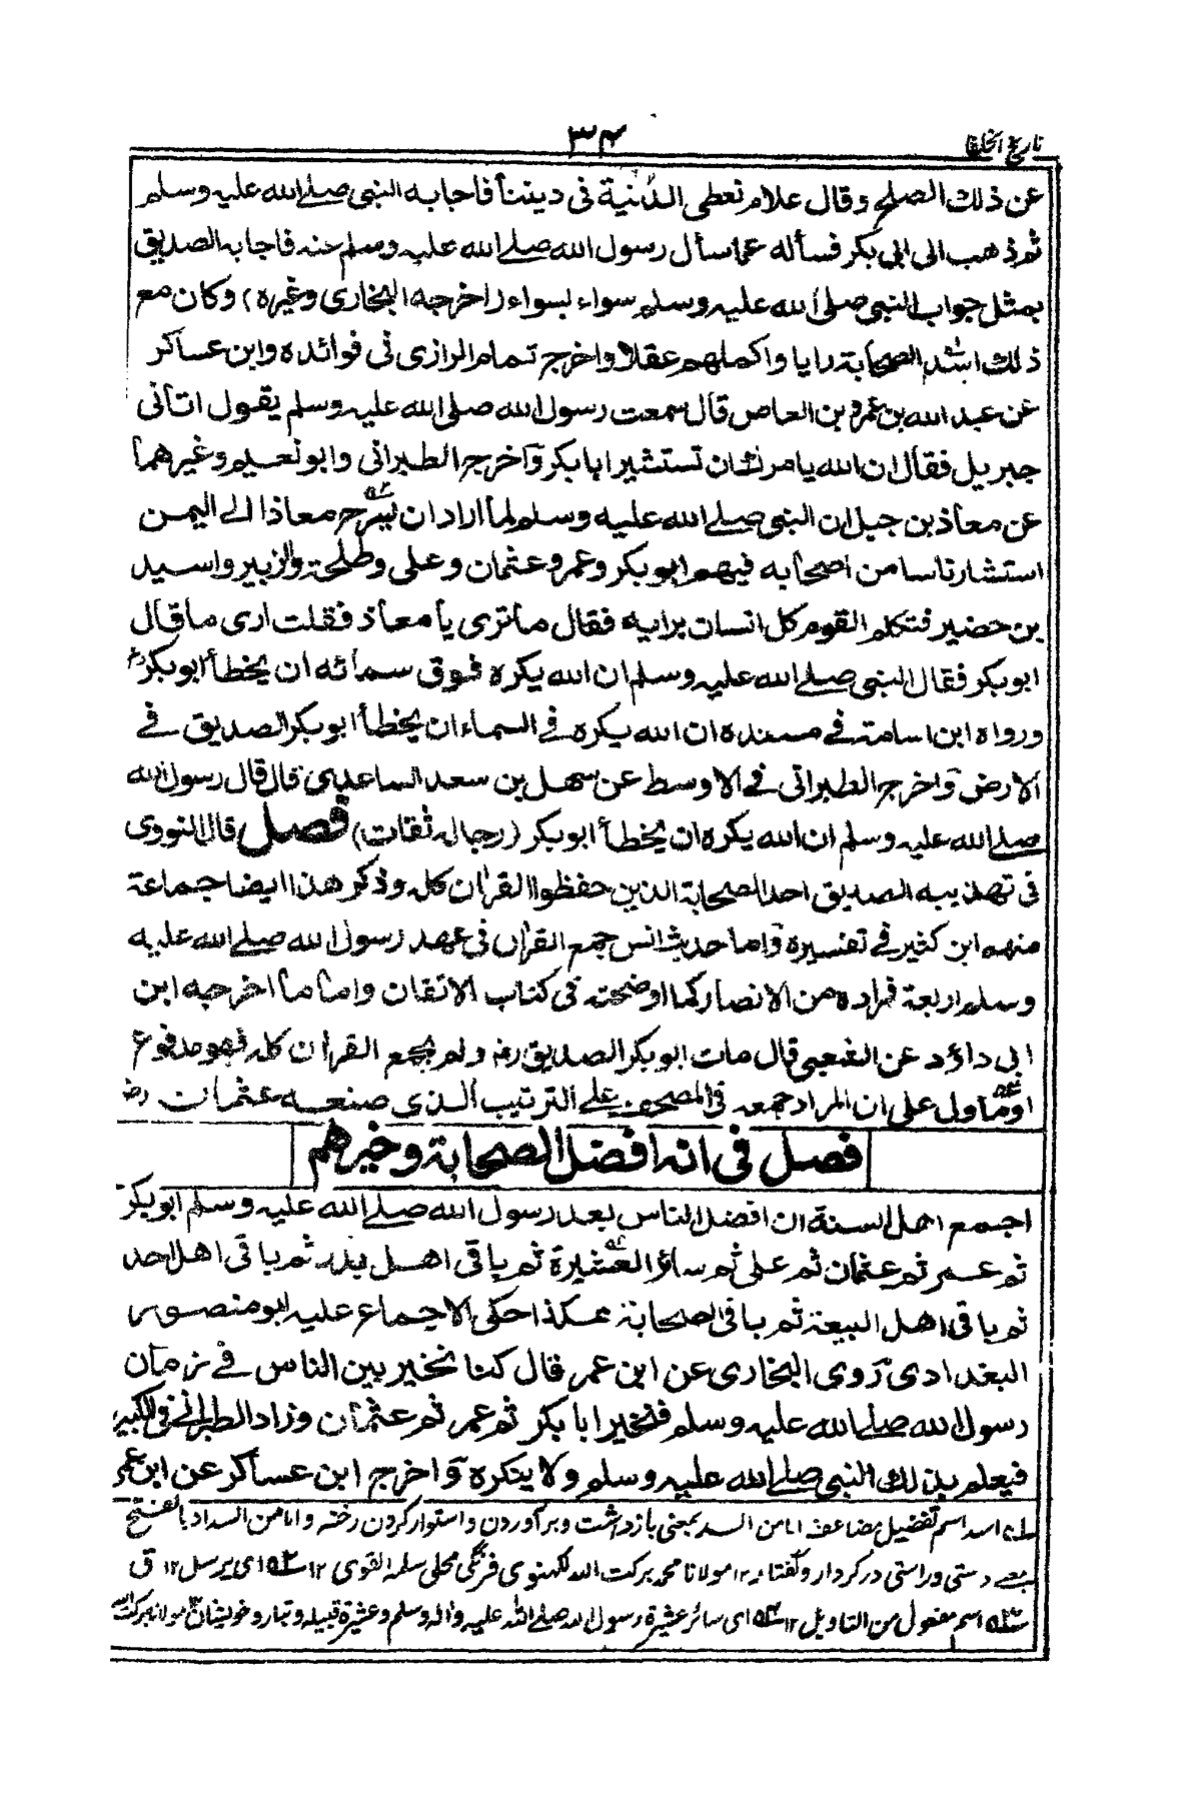 تاريخ الخلفا
۳۴
عن ذلك الصلح وقال علام نعطي الدُنية في ديننا فاجابه النبي صلے الله عليه وسلم
ثم ذهب الى ابي بكر فسأله عما سأل رسول الله صلے الله عليه وسلم عنه فاجابه الصديق
بمثل جواب النبي صلى الله عليه وسلم سواء بسواء (اخرجه البخارى وغيره) وكان مع
ذلك اسد الصحابة رايا واكملهم عقلا واخرج تمام الرازى في فوائده وابن عساكر
عن عبد الله بن عمرو بن العاص قال سمعت رسول الله صلى الله عليه وسلم يقول اتانى
جبريل فقال ان الله يامرك ان تستشير ابا بكر وآخرج الطبرانى وابو نعيم وغيرهما
عن معاذ بن جبل ان النبي صلے الله عليه وسلم لما اراد ان يسرح معاذا الے اليمن
استشار ناسا من اصحابه فيهم ابو بكر وعمر وعثمان وعلى وطلحة والزبير واسيد
بن حضير فتكلم القوم كل انسان برايه فقال ما ترى يا معاذ فقلت ارى ما قال
ابو بكر فقال النبي صلے الله عليه وسلم ان الله يكره فوق سمائه ان يخطأ ابو بكر رض
ورواه ابن اسامة في مسنده ان الله يكره في السماء ان يخطأ ابو بكر الصديق في
الارض وآخرج الطبراني في الاوسط عن سهل بن سعد الساعدى قال قال رسول الله
صلے الله عليه وسلم ان الله يكره ان يخطأ ابو بكر (رجاله ثقات) فصل قال النووى
فى تهذيبه الصديق احد الصحابة الذين حفظوا القرآن كله وذكر هذا ايضا جماعة
منهم ابن كثير في تفسيره وآما حديث انس جمع القرآن فى عهد رسول الله صلے الله عليه
وسلم اربعة فمراده من الانصار كما اوضحته فى كتاب الاتقان واما ما اخرجه ابن
ابى داؤد عن الشعبى قال مات ابو بكر الصديق رض ولم يجمع القرآن كله فهو مدفوع
او مأول على ان المراد جمعه فى المصحف على الترتيب الذى صنعه عثمان رض
فصل فى انه افضل الصحابة وخيرهم
اجمع اهل السنة ان افضل الناس بعد رسول الله صلے الله عليه وسلم ابو بكر
ثم عمر ثم عثمان ثم على ثم سائر العشيرة ثم باقى اهل بدر ثم باقى اهل احد
ثم باقى اهل البيعة ثم باقى الصحابة هكذا حكى الاجماع عليه ابو منصور
البغدادى روى البخارى عن ابن عمر قال كنا نخير بين الناس في زمان
رسول الله صلے الله عليه وسلم فنخير ابا بكر ثم عمر ثم عثمان وزاد الطبرانى فى الكبير
فيعلم بذلك النبى صلے الله عليه وسلم ولا ينكره وآخرج ابن عساكر عن ابن عمر
اسد اسم تفضيل مضاعف اما من السد بمعنى بازداشت وبر آوردن واستوار كردن رخنه واما من السداد بالفتح
بمعنے رستى وراستى در كردار وگفتار ۱۲ مولانا محمد بركت الله لكهنوى فرنگى محلى سلمه القوى ۱۲ ۵۲ اى يرسل ۱۲ ق
۵۳ اسم مفعول من التاويل ۱۲ ۵۴ اى سائر عشيرة رسول الله صلے الله عليه وآله وسلم وعشيرة قبيله وتبار وخويشان ۱۲ مولانا بركت الله